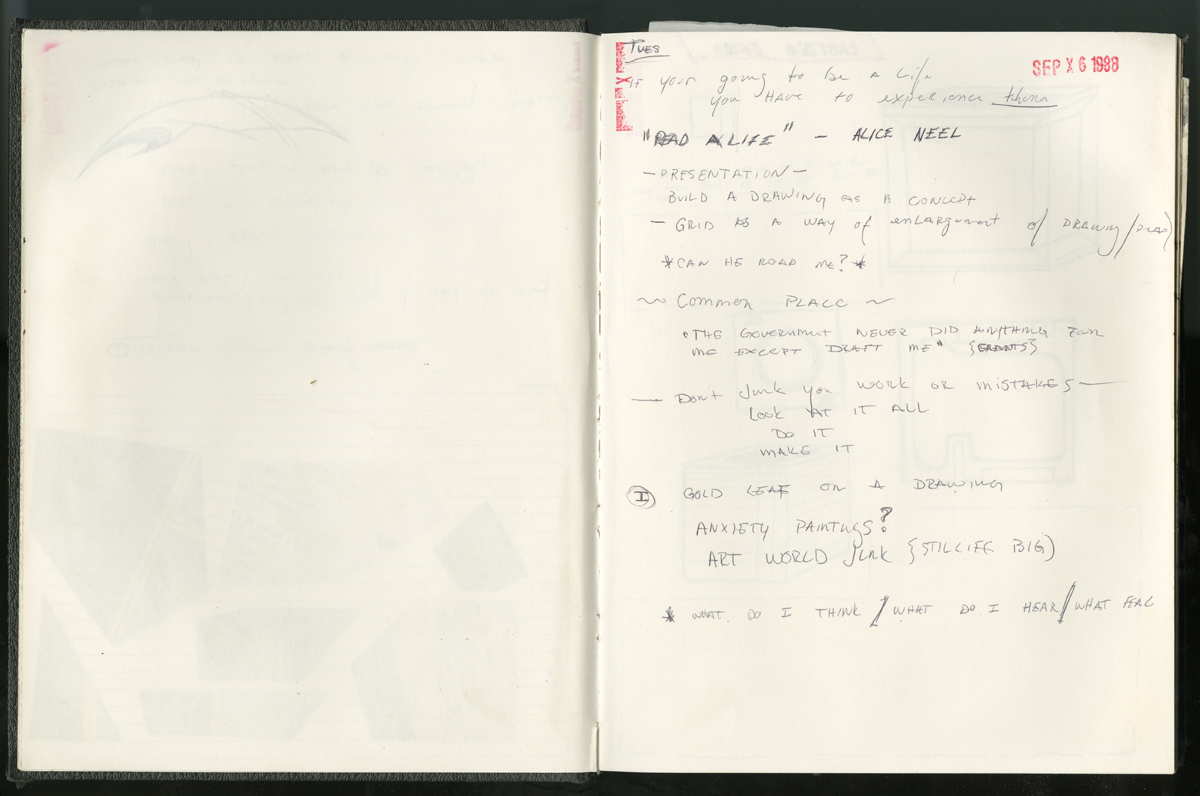 TUES
SEP X 6 1988
IF your going to be a life
you HAVE to experience
"READ A LIFE" — ALICE NEEL
— PRESENTATION —
BUILD A DRAWING as A CONCEPT
— GRID AS A WAY of enLargement of DRAWING /
*CAN HE ROAD ME? *
~ Common PLACE ~
"THE GOVERNMENT NEVER DID ANYTHING FOR
ME EXCEPT DRAFT ME" {GRANTS}
— Dont Junk you WORK OR MISTAKES —
Look AT IT ALL
DO IT
MAKE IT
I GOLD LEAF on A DRAWING
ANXIETY PAINTINGS?
ART WORLD JUNK {STILLIFE BIG)
* WHAT DO I THINK / WHAT DO I HEAR / WHAT FEAL